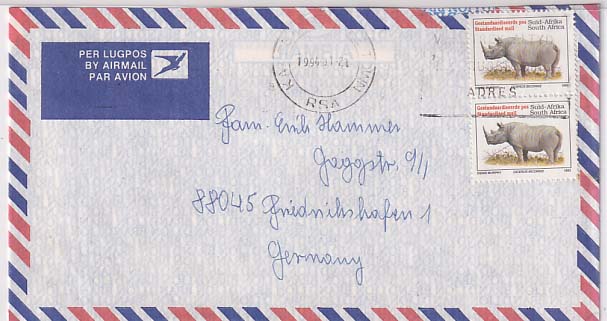 PER LUGPOS
BY AIRMAIL
PAR AVION
1994
RSA
Gestandaardiseerde pos
Standardised mail
Suid-Afrika
South Africa
ADRES
Gestandaardiseerde pos
Standardised mail
Suid-Afrika
South Africa
Fam. Erich Hammer
Jaggstr. 9/1
88045 Friedrikshafen 1
Germany